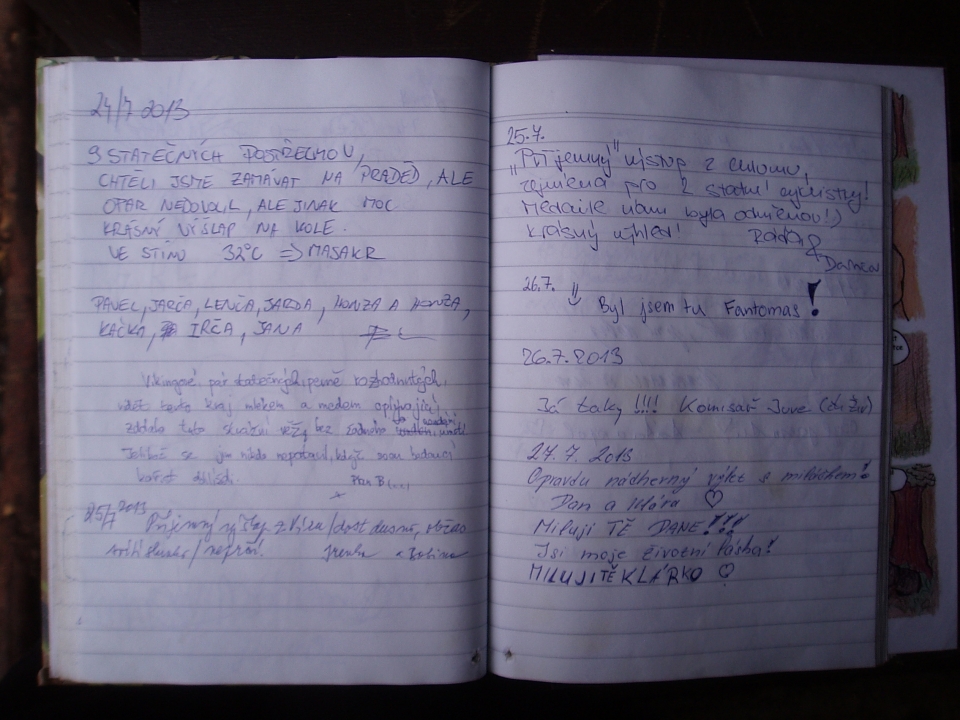 24/7 2013
9 STATEČNÝCH POSTŘECHOU,
CHTĚLI JSME ZAMÁVAT NA PRADĚD, ALE
OPAR NEDOVOLIL, ALE JINAK MOC
KRÁSNÝ VÝŠLAP NA KOLE.
VE STÍNU 32°C => MASAKR
PAVEL, JARČA, LENČA, JARDA, HONZA A HONZA,
KAČKA, IRČA, JANA
Vikingové, pár statečných, pevně
kraj mlékem a medem oplývající,
tuto věž bez
se jim nikdo nepostavil, když svou budoucí
kořist
Plan B
25/7 2013 Příjemný výšlap z / dost dusno, občas
/ neprší. a
25.7.
„Příjemný" výstup z
zejména pro 2 statné cyklistky!
Medaile nám byla odměnou!)
Krásný výhled! Radka
&
26.7. Byl jsem tu Fantomas!
26.7.2013
Já taky !!!! Komisař Juve
27.7.2013
Opravdu nádherný výlet s miláčkem!
Dan a Klára ♡
Miluji TĚ DANE!!!
Jsi moje životní láska!
MILUJI TĚ KLÁRKO ♡